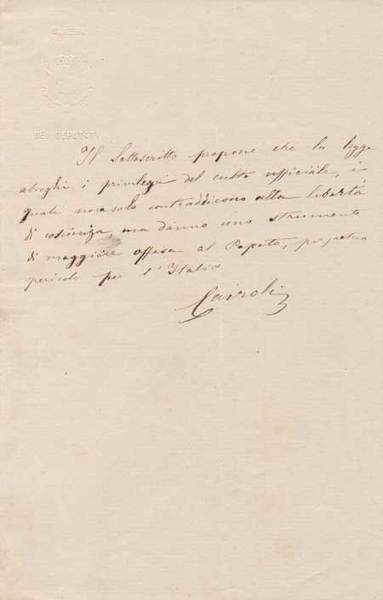 CAMERA
DEI DEPUTATI
Il Sottoscritto propone che la legge
abroghi i privilegi del culto ufficiale, i
quali non solo contraddicono alla libertà
di coscienza, ma danno uno strumento
di maggiore offesa al Papato, perpetuo
pericolo per l'Italia
Cairoli